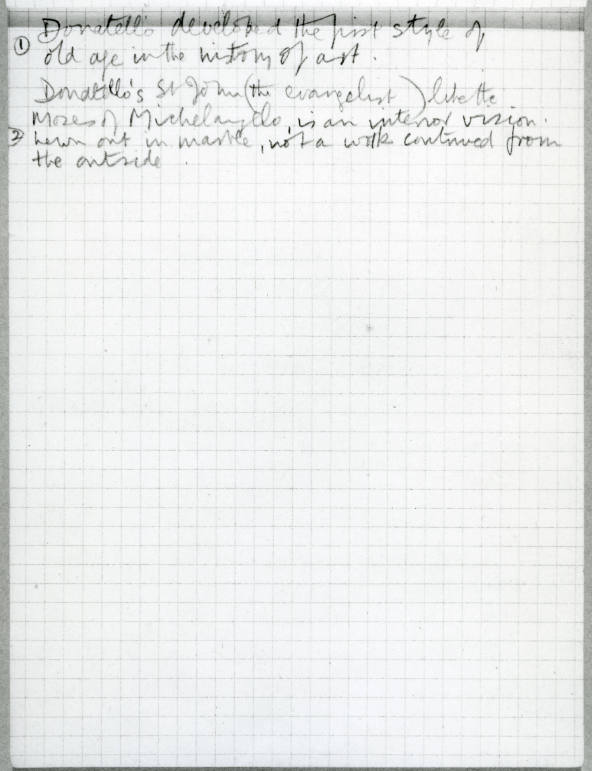 ① Donatello developed the first style of
old age in the history of art.
Donatello's St John (the evangelist) like the
Moses of Michelangelo, is an interior vision.
② hewn out in marble, not a work contrived from
the outside.